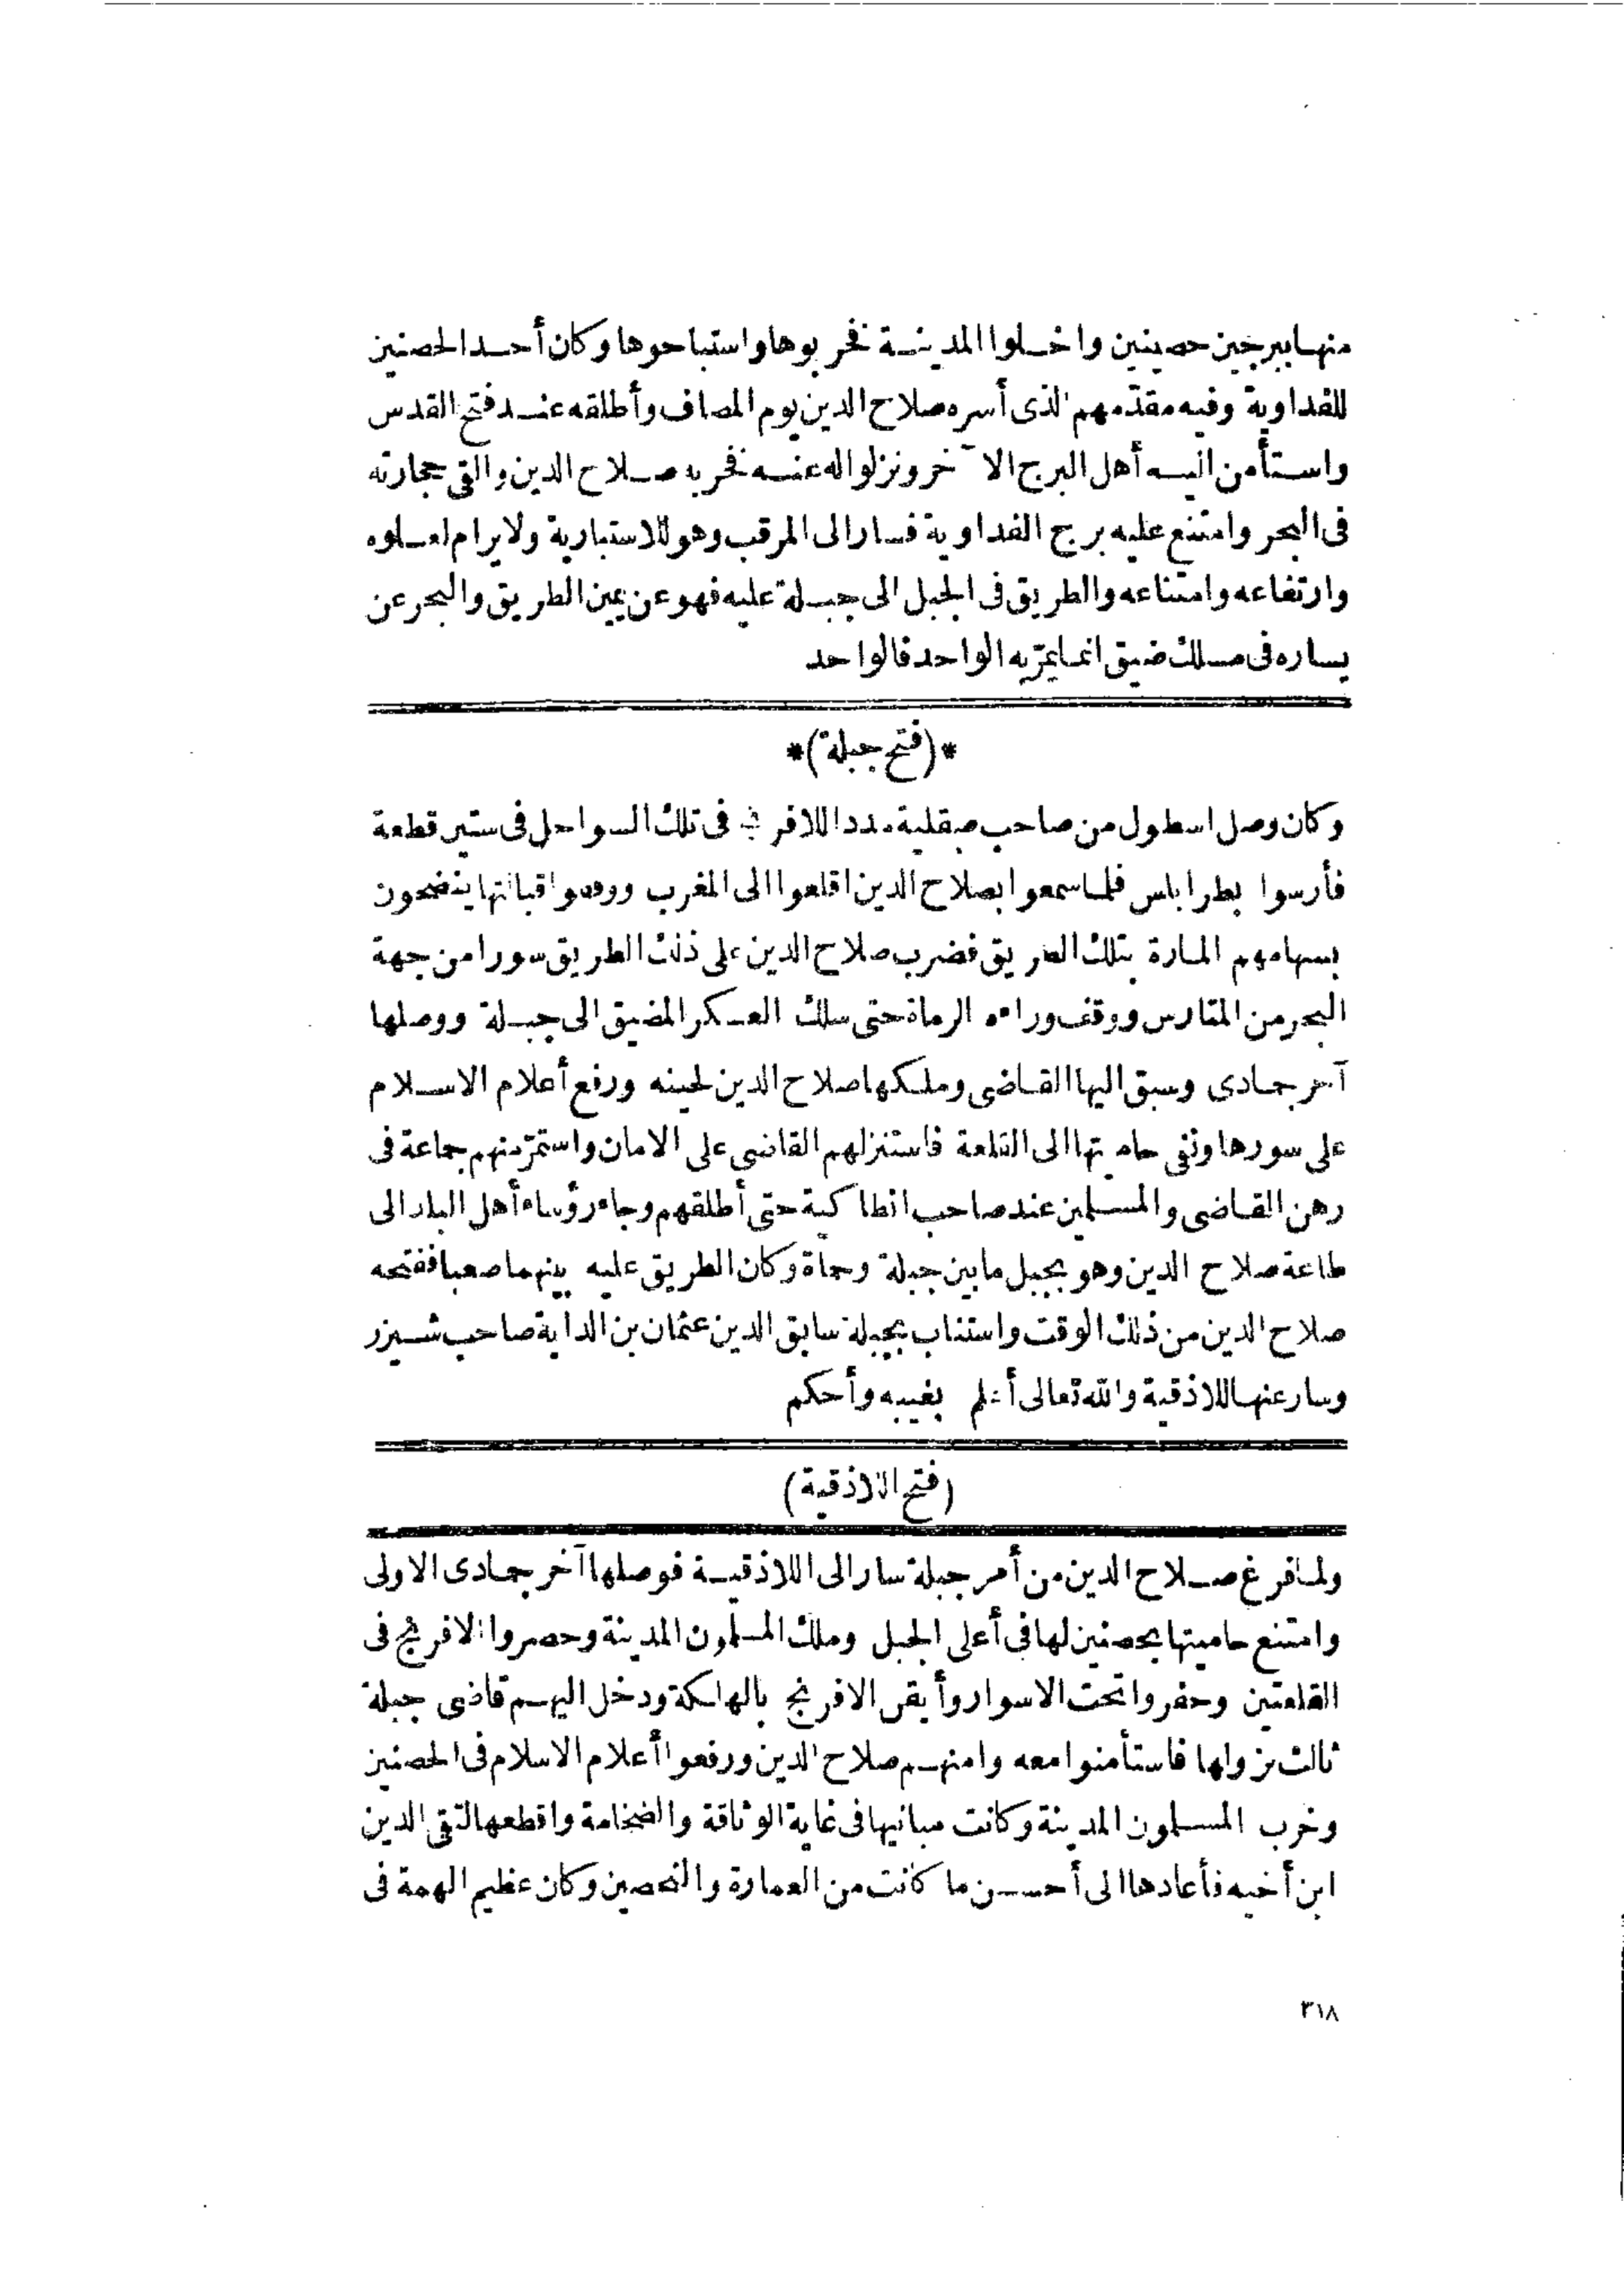 منها ببرجين حصينين واخلوا المدينة فخربوها واستباحوها وكان أحد الحصنين
للفداوية وفيه مقدّمهم الذى أسره صلاح الدين يوم المصاف وأطلقه عند فتح القدس
واستأمن اليه أهل البرج الآخر ونزلوا له عنه فخربه صلاح الدين والقى حجارته
فى البحر وامتنع عليه برج الفداوية فسار الى المرقب وهو للاستبارية ولا يرام لعلوه
وارتفاعه وامتناعه والطريق فى الجبل الى جبلة عليه فهو عن يمين الطريق والبحر عن
يساره فى مسلك ضيق انما يمرّ به الواحد فالواحد
*(فتح جبلة)*
وكان وصل اسطول من صاحب صقلية مددا للافرنج فى تلك السواحل فى ستين قطعة
فأرسوا بطرابلس فلما سمعوا بصلاح الدين اقلعوا الى المغرب ووقفوا قبالتها ينضحون
بسهامهم المارة بتلك الطريق فضرب صلاح الدين على ذلك الطريق سورا من جهة
البحر من المتارس ووقف وراءه الرماة حتى سلك العسكر المضيق الى جبلة ووصلها
آخر جمادى وسبق اليها القاضى وملكها صلاح الدين لحينه ورفع أعلام الاسلام
على سورها ونفى حاميتها الى القلعة فاستنزلهم القاضى على الامان واستمرّ منهم جماعة فى
رهن القاضى والمسلمين عند صاحب انطاكية حتى أطلقهم وجاء رؤساء أهل البلد الى
طاعة صلاح الدين وهو بجبل ما بين جبلة وحماة وكان الطريق عليه بينهما صعبا ففتحه
صلاح الدين من ذلك الوقت واستناب بجبلة سابق الدين عثمان بن الداية صاحب شيزر
وسار عنها للاذقية والله تعالى أعلم بغيبه وأحكم
(فتح اللاذقية)
ولما فرغ صلاح الدين من أمر جبلة سار الى اللاذقية فوصلها آخر جمادى الاولى
وامتنع حاميتها بحصنين لها فى أعلى الجبل وملك المسلمون المدينة وحصروا الافرنج فى
القلعتين وحفروا تحت الاسوار وأيقن الافرنج بالهلكة ودخل اليهم قاضى جبلة
ثالث نزولها فاستأمنوا معه وامنهم صلاح الدين ورفعوا أعلام الاسلام فى الحصنين
وخرب المسلمون المدينة وكانت مبانيها فى غاية الوثاقة والضخامة واقطعها لتقى الدين
ابن أخيه فأعادها الى أحسن ما كانت من العمارة والتحصين وكان عظيم الهمة فى
٣١٨